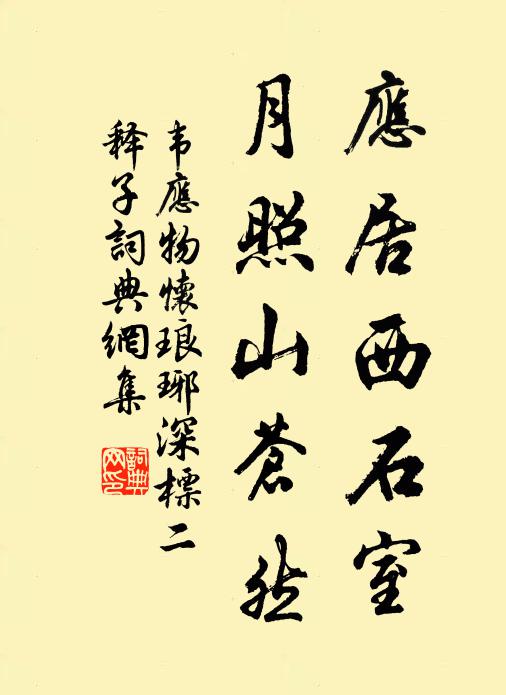 應居西石室
月照山蒼然
韦應物懷琅琊深標二
释子詞典網集
詞典网印